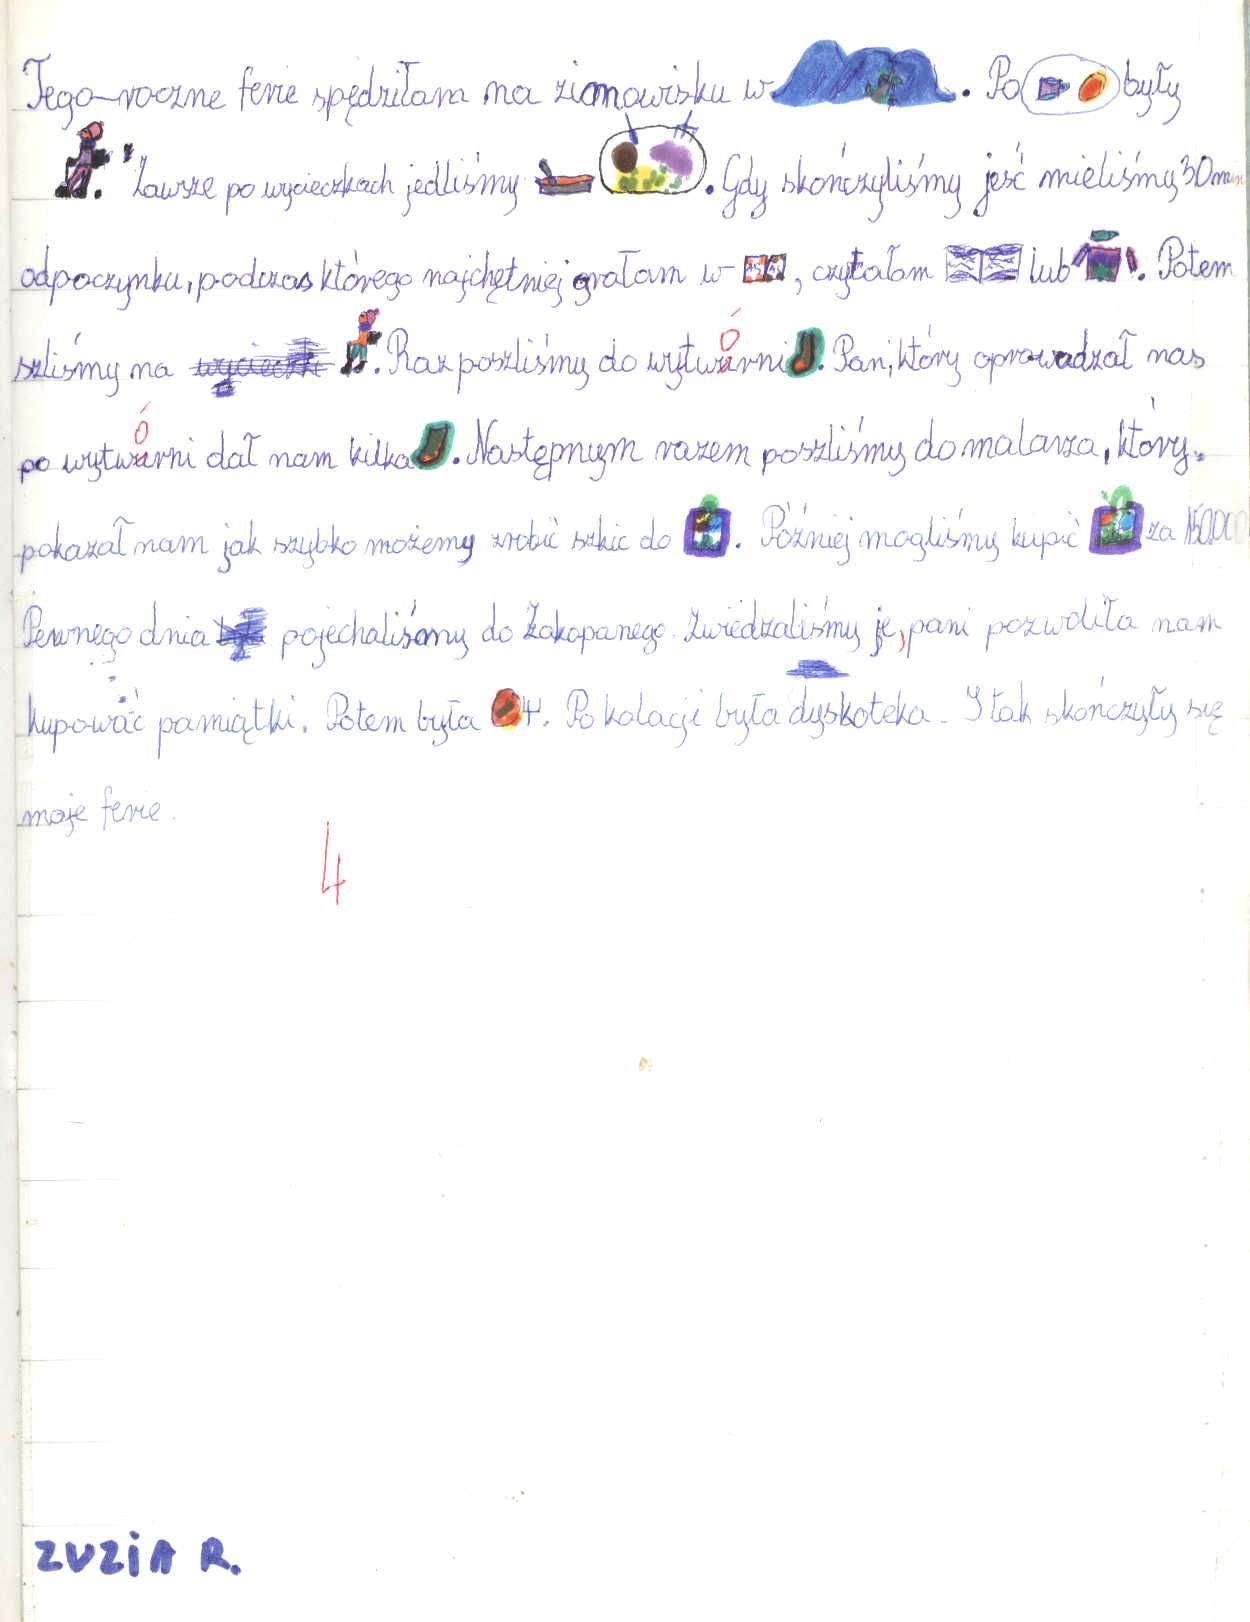 Tego-roczne ferie spędziłam na zimowisku w . Po były
. Zawsze po wycieczkach jedliśmy . Gdy skończyliśmy jeść mieliśmy 30 min
odpoczynku, podczas którego najchętniej grałam w , czytałam lub . Potem
szliśmy na . Raz poszliśmy do wytwurni . Pan, który oprowadzał nas
ó
po wytwurni dał nam kilka . Następnym razem poszliśmy do malarza, który
ó
pokazał nam jak szybko możemy zrobić szkic do . Później mogliśmy kupić za 150.000
Pewnego dnia pojechaliśmy do Zakopanego. Zwiedzaliśmy je, pani pozwoliła nam
kupować pamiątki. Potem była . Po kolacji była dyskoteka. I tak skończyły się
moje ferie.
4
ZUZIA R.